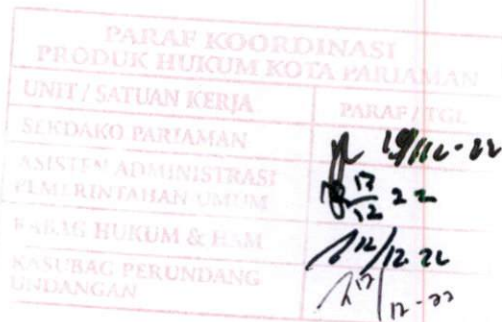 PARAF KOORDINASI
PRODUK HUKUM KOTA PARIAMAN
UNIT / SATUAN KERJA PARAF / TGL
SEKDAKO PARIAMAN
ASISTEN ADMINISTRASI
PEMERINTAHAN UMUM 12 22
KABAG HUKUM & HAM 12/12 22
KASUBAG PERUNDANG
UNDANGAN 12-22